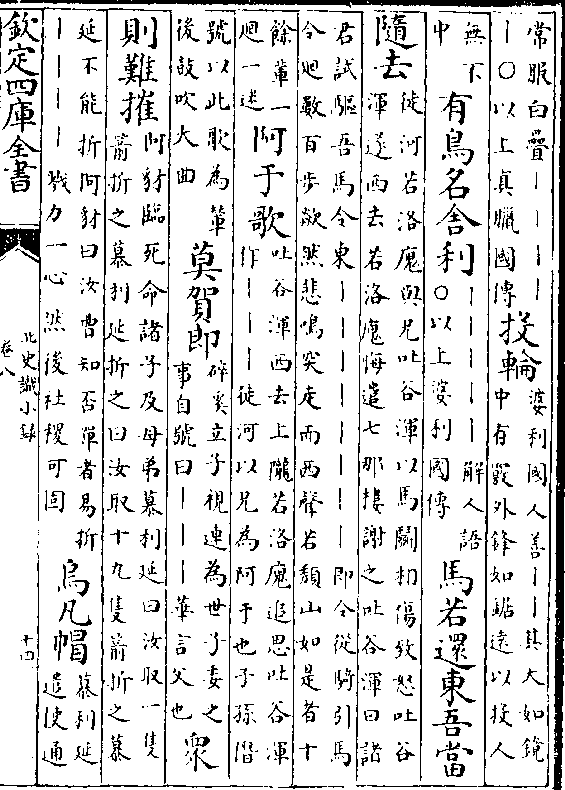 常服白疊｜｜｜｜
｜○以上真臘國傳
投輪
婆利國人善｜｜其大如鏡
中有竅外鋒如鋸遠以投人
無不
中
有鳥名舍利
｜｜｜｜｜解人語
○以上婆利國傳
馬若還東吾當
隨去
徒河若洛廆與兄吐谷渾以馬鬬相傷致怒吐谷
渾遂西去若洛廆悔遣七那樓謝之吐谷渾曰諸
君試驅吾馬令東｜｜｜｜｜｜｜即令從騎引馬
令迴數百步欻然悲鳴突走而西聲若頽山如是者十
餘輩一
迴一迷
阿于歌
吐谷渾西去上隴若洛廆追思吐谷渾
作｜｜｜徒河以兄為阿于也子孫僭
號以此歌為輦
後鼓吹大曲
莫賀郎
碎奚立子視連為世子委之
事自號曰｜｜｜華言父也
衆
則難摧
阿豺臨死命諸子及母弟慕利延曰汝取一隻
箭折之慕利延折之曰汝取十九隻箭折之慕
延不能折阿豺曰汝曹知否單者易折
｜｜｜｜戮力一心然後社稷可固
烏凡帽
慕利延
遣使通
欽定四庫全書
北史識小錄
卷八
十四